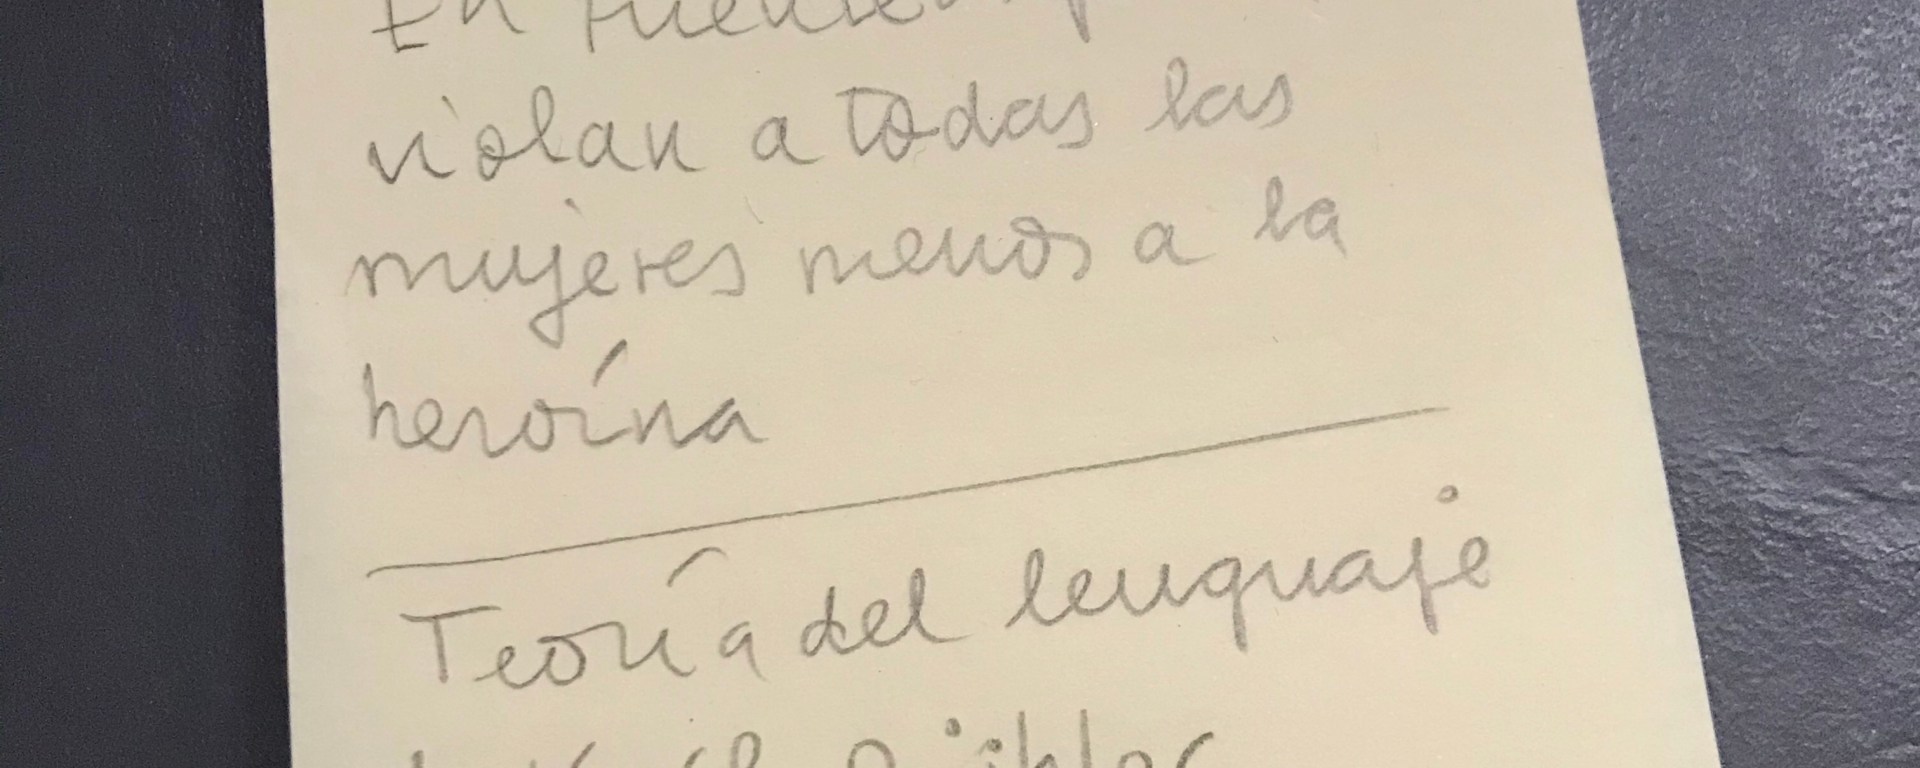 En
violan a todas las
mujeres menos a la
heroína
Teoría del lenguaje
Bühler